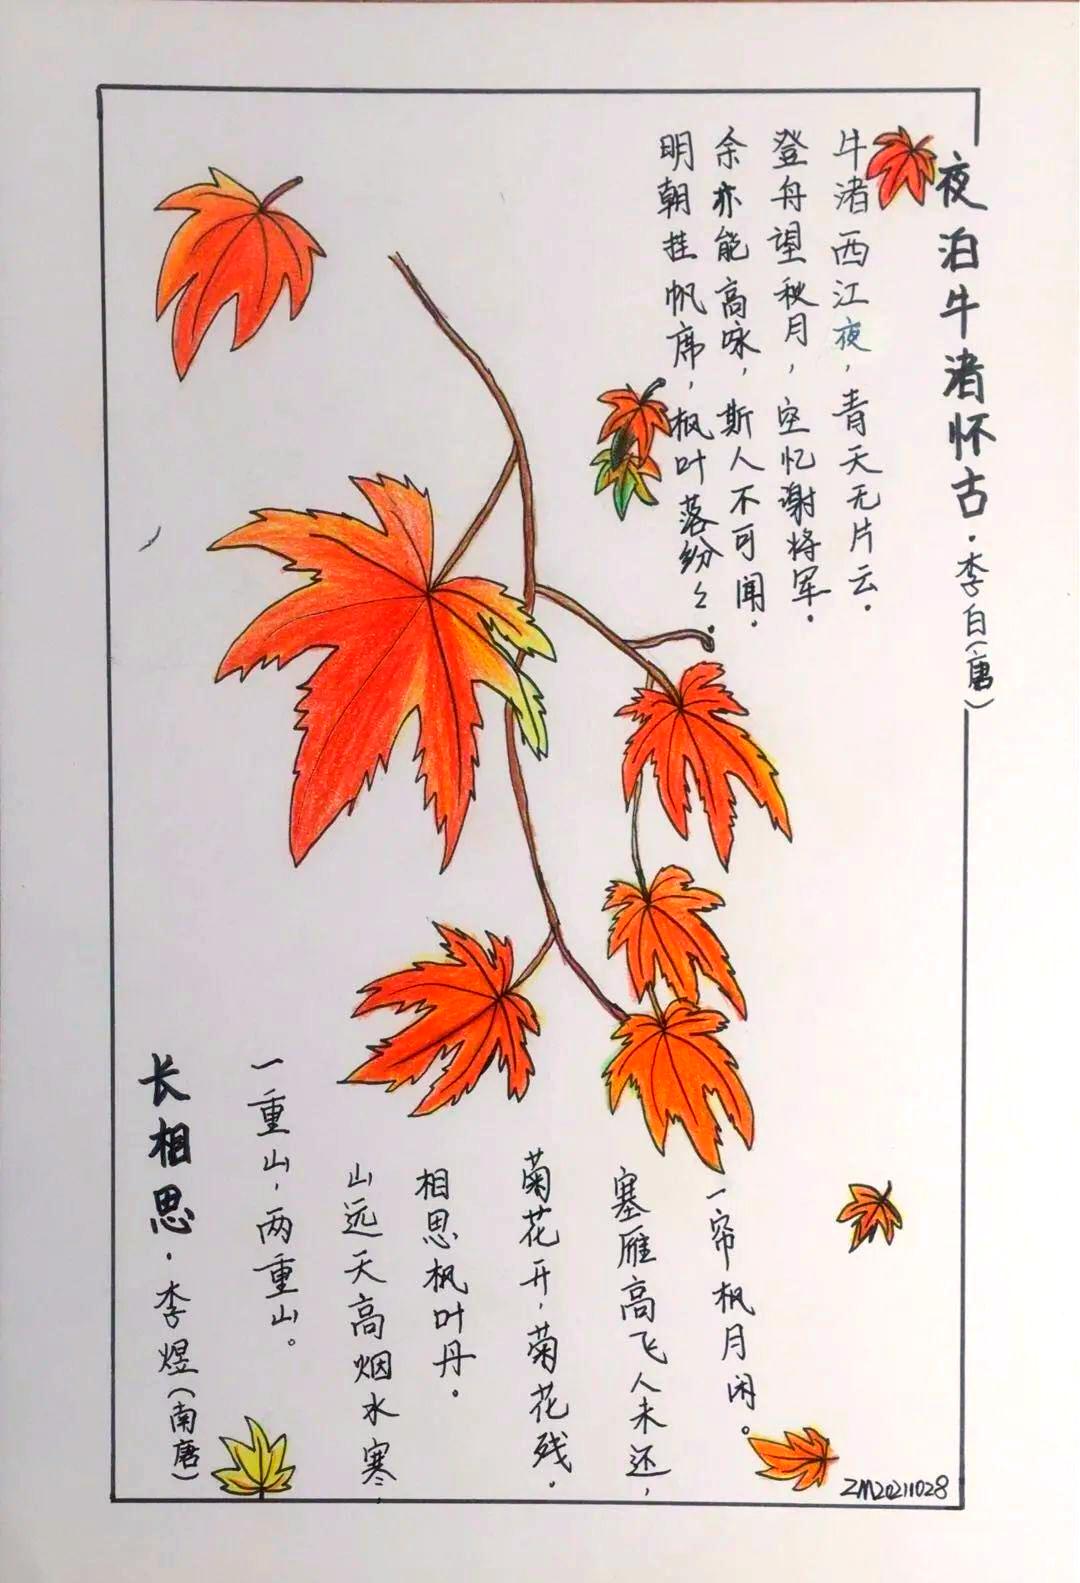 夜泊牛渚怀古·李白(唐)
牛渚西江夜，青天无片云.
登舟望秋月，空忆谢将军.
余亦能高咏，斯人不可闻.
明朝挂帆席，枫叶落纷々.
长相思·李煜(南唐)
一重山，两重山。
山远天高烟水寒
相思枫叶丹.
菊花开，菊花残.
塞雁高飞人未还，
一帘枫月闲。
ZM20211028